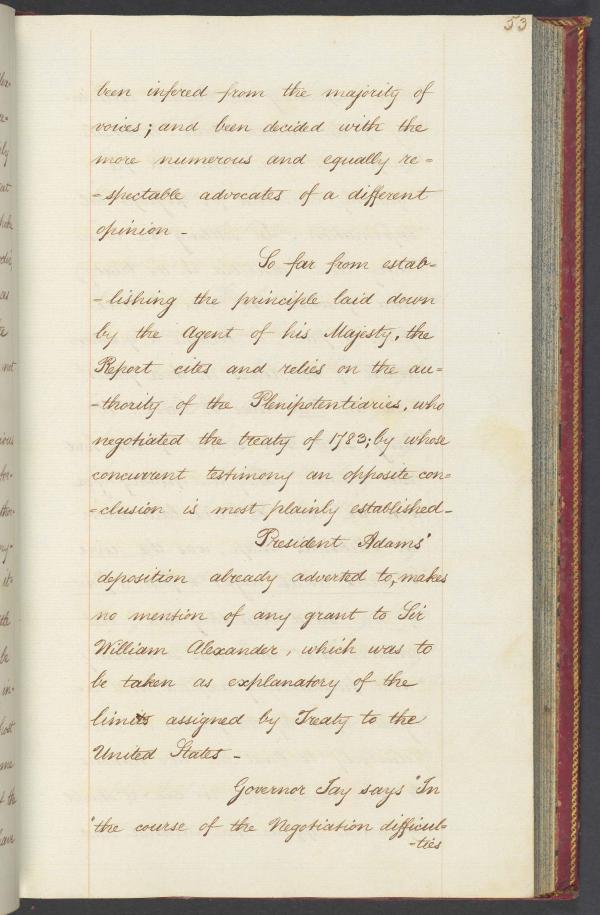 53
been infered from the majority of
voices; and been decided with the
more numerous and equally re=
=spectable advocates of a different
opinion -
So far from estab=
=lishing the principle laid down
by the Agent of his Majesty, the
Report cites and relies on the au=
=thority of the Plenipotentiaries, who
negotiated the treaty of 1783; by whose
concurrent testimony an opposite con=
=clusion is most plainly established -
President Adams'
deposition already adverted to, makes
no mention of any grant to Sir
William Alexander, which was to
be taken as explanatory of the
limits assigned by Treaty to the
United States -
Governor Jay says "In
"the course of the Negotiation difficul=
=ties